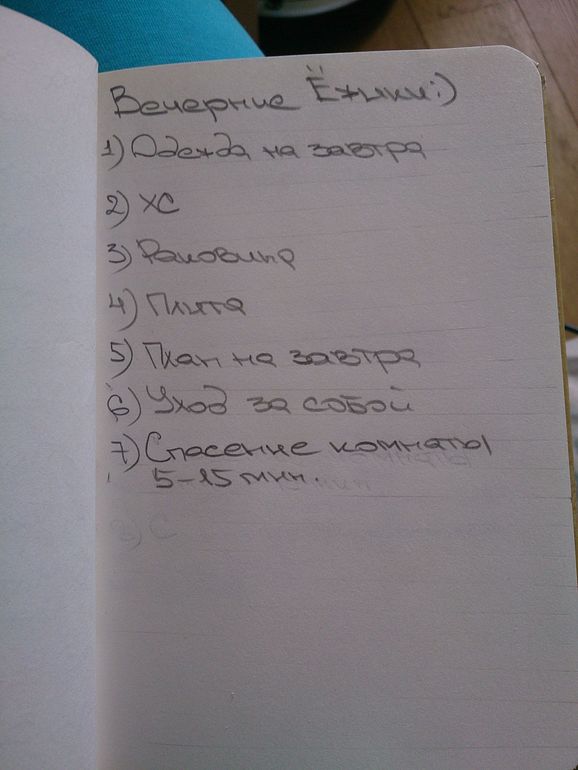 Вечерние Ёжики:)
1) Одежда на завтра
2) ХС
3) Раковина
4) Плита
5) План на завтра
6) Уход за собой
7) Спасение комнаты
5-15 мин.
8) С